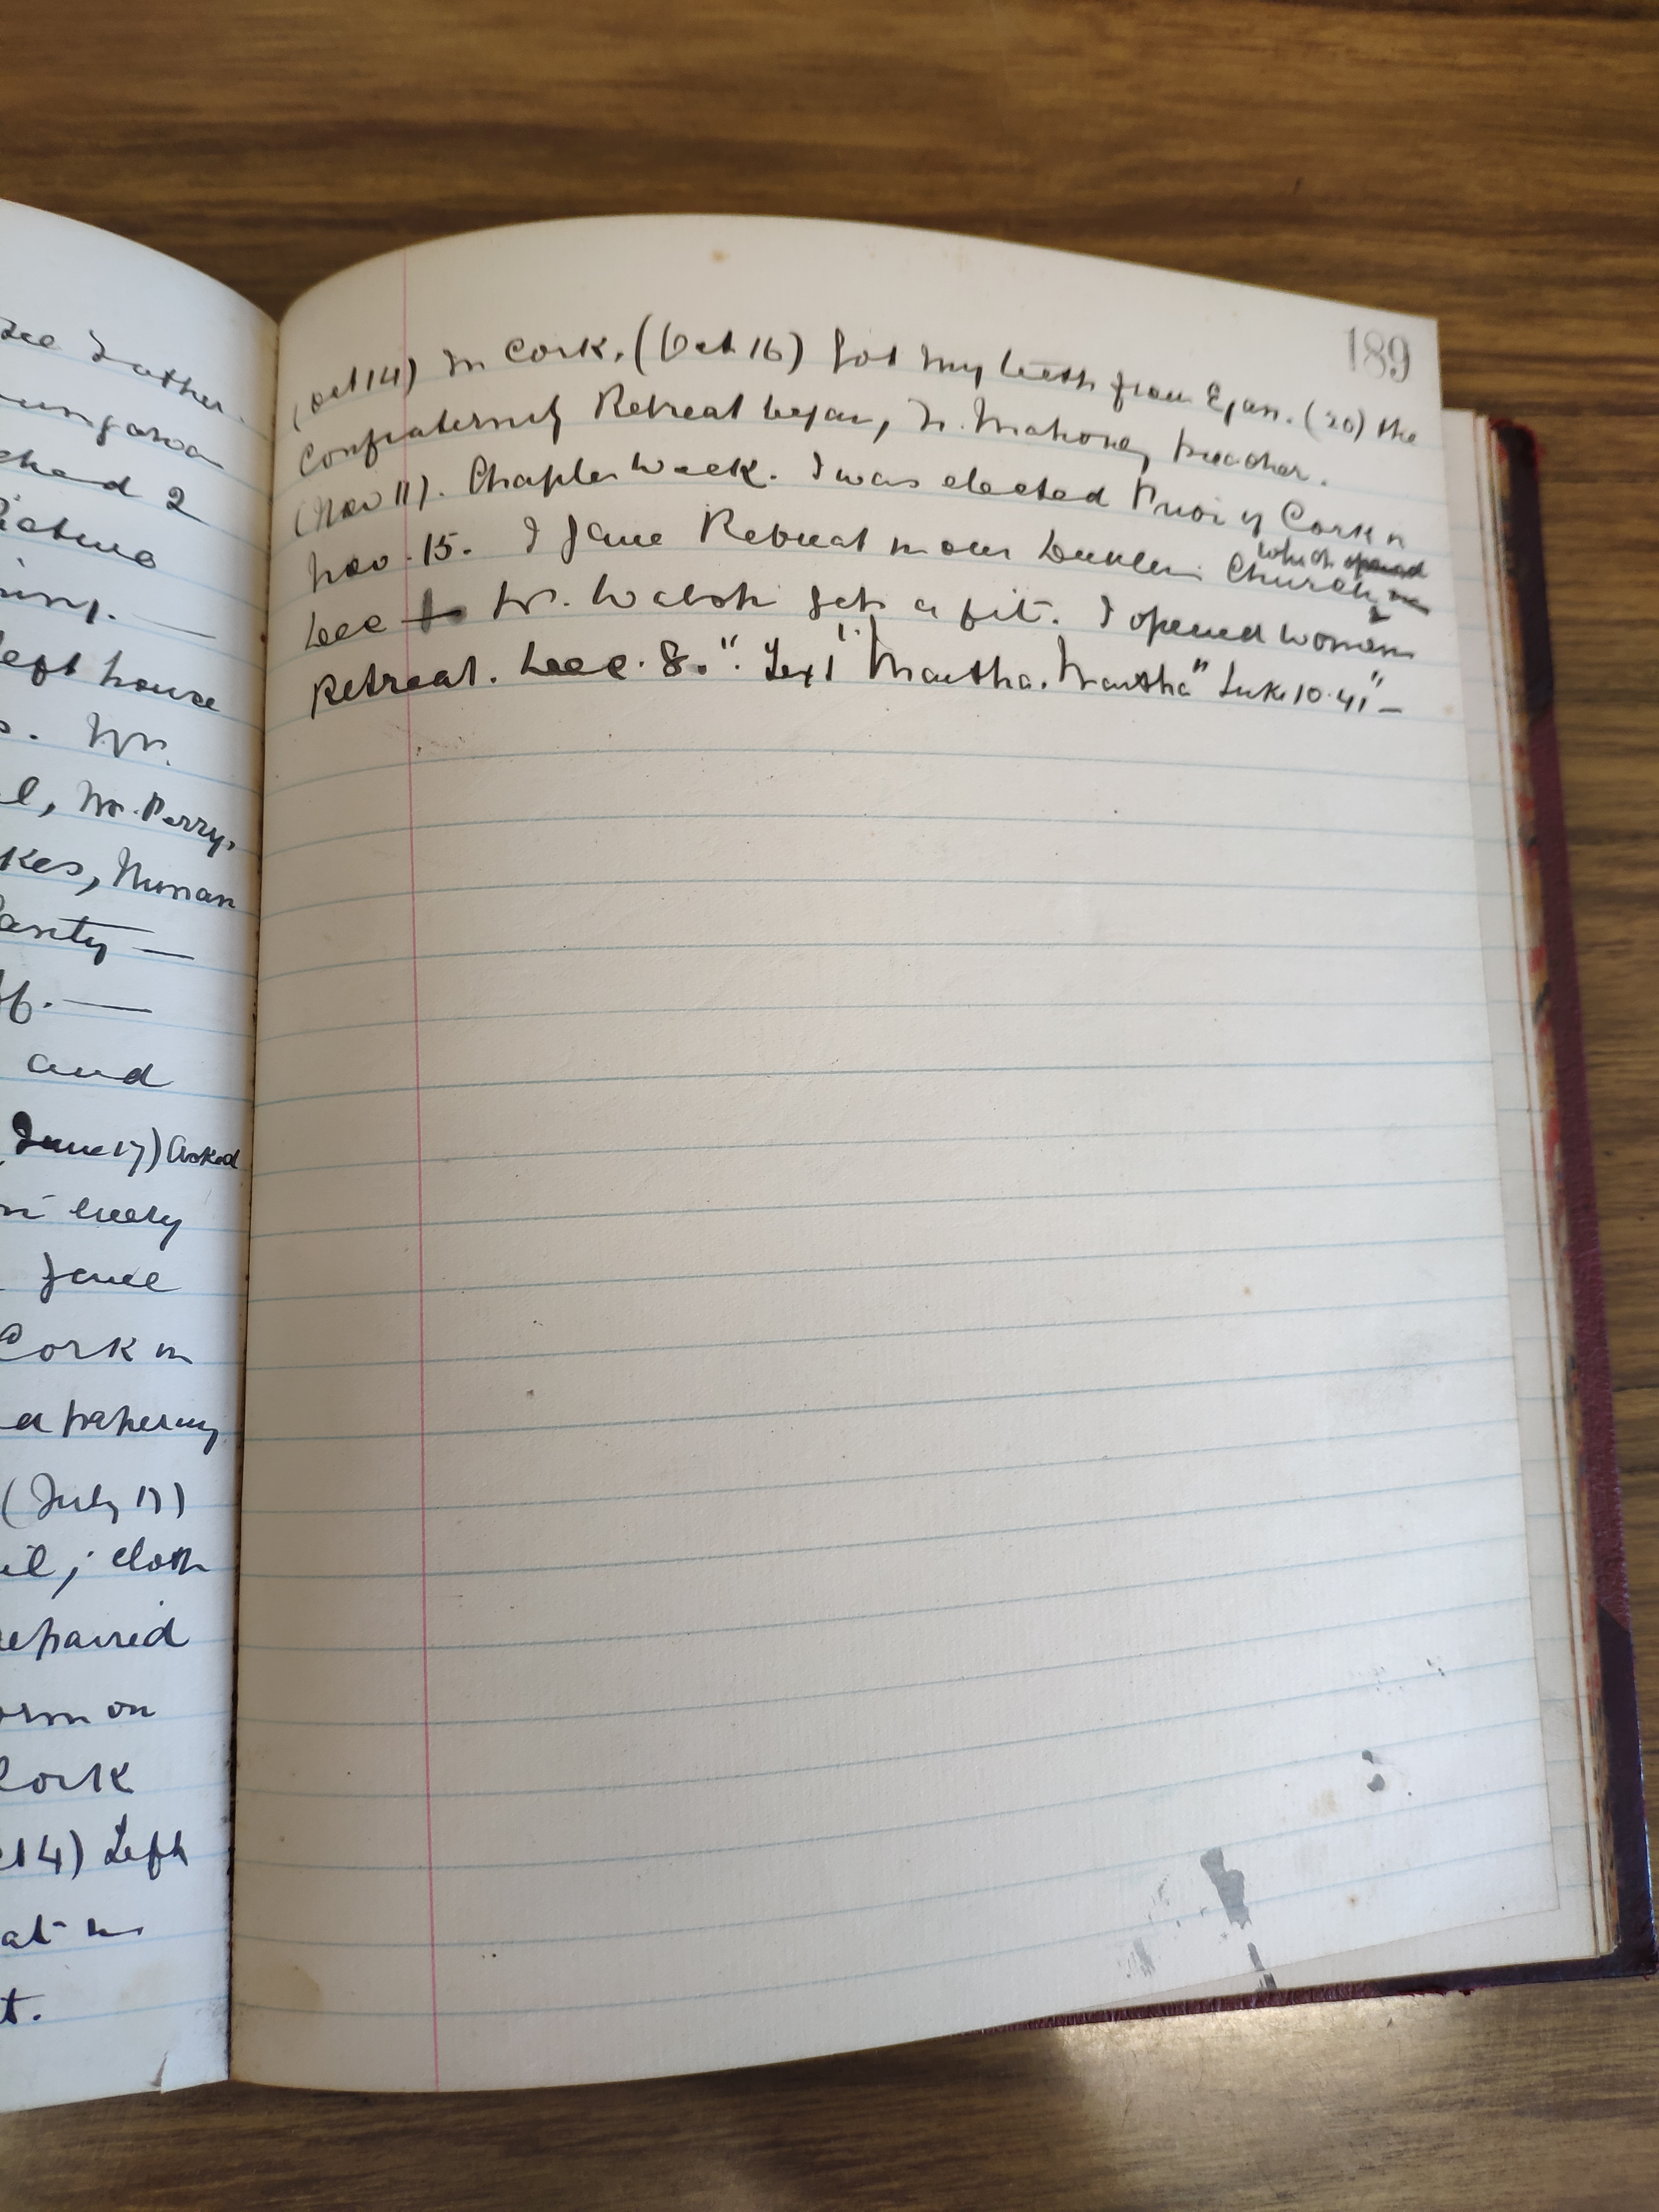 See Father.
ched 2
Picture
left house
s. Fr.
l, Fr. Perry,
kes, Nunan
and
June 17) Asked
in every
gave
Cork in
a papering
(July 17)
il; cloth
repaired
orm on
Cork
t 14) Left
at in
t.
189
(Oct 14) In Cork. (Oct 16) Got my teeth from Egan. (20) the
Confraternity Retreat began, Fr. Mahony preacher.
(Nov 11). Chapter Week. I was elected Prior of Cork n
Nov. 15. I gave Retreat in our Dublin Church
which opened
Dec Fr. Walsh gets a fit. I opened women
Retreat. Dec. 8." Text "Martha. Martha" Luke 10.41" —